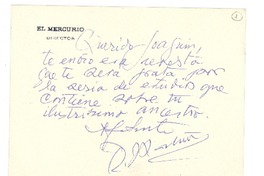 EL MERCURIO
DIRECTOR
Querido Joaquín,
te envío esta revista
que te será grata por
la serie de estudios que
contiene sobre tu
ilustrísimo ancestro.